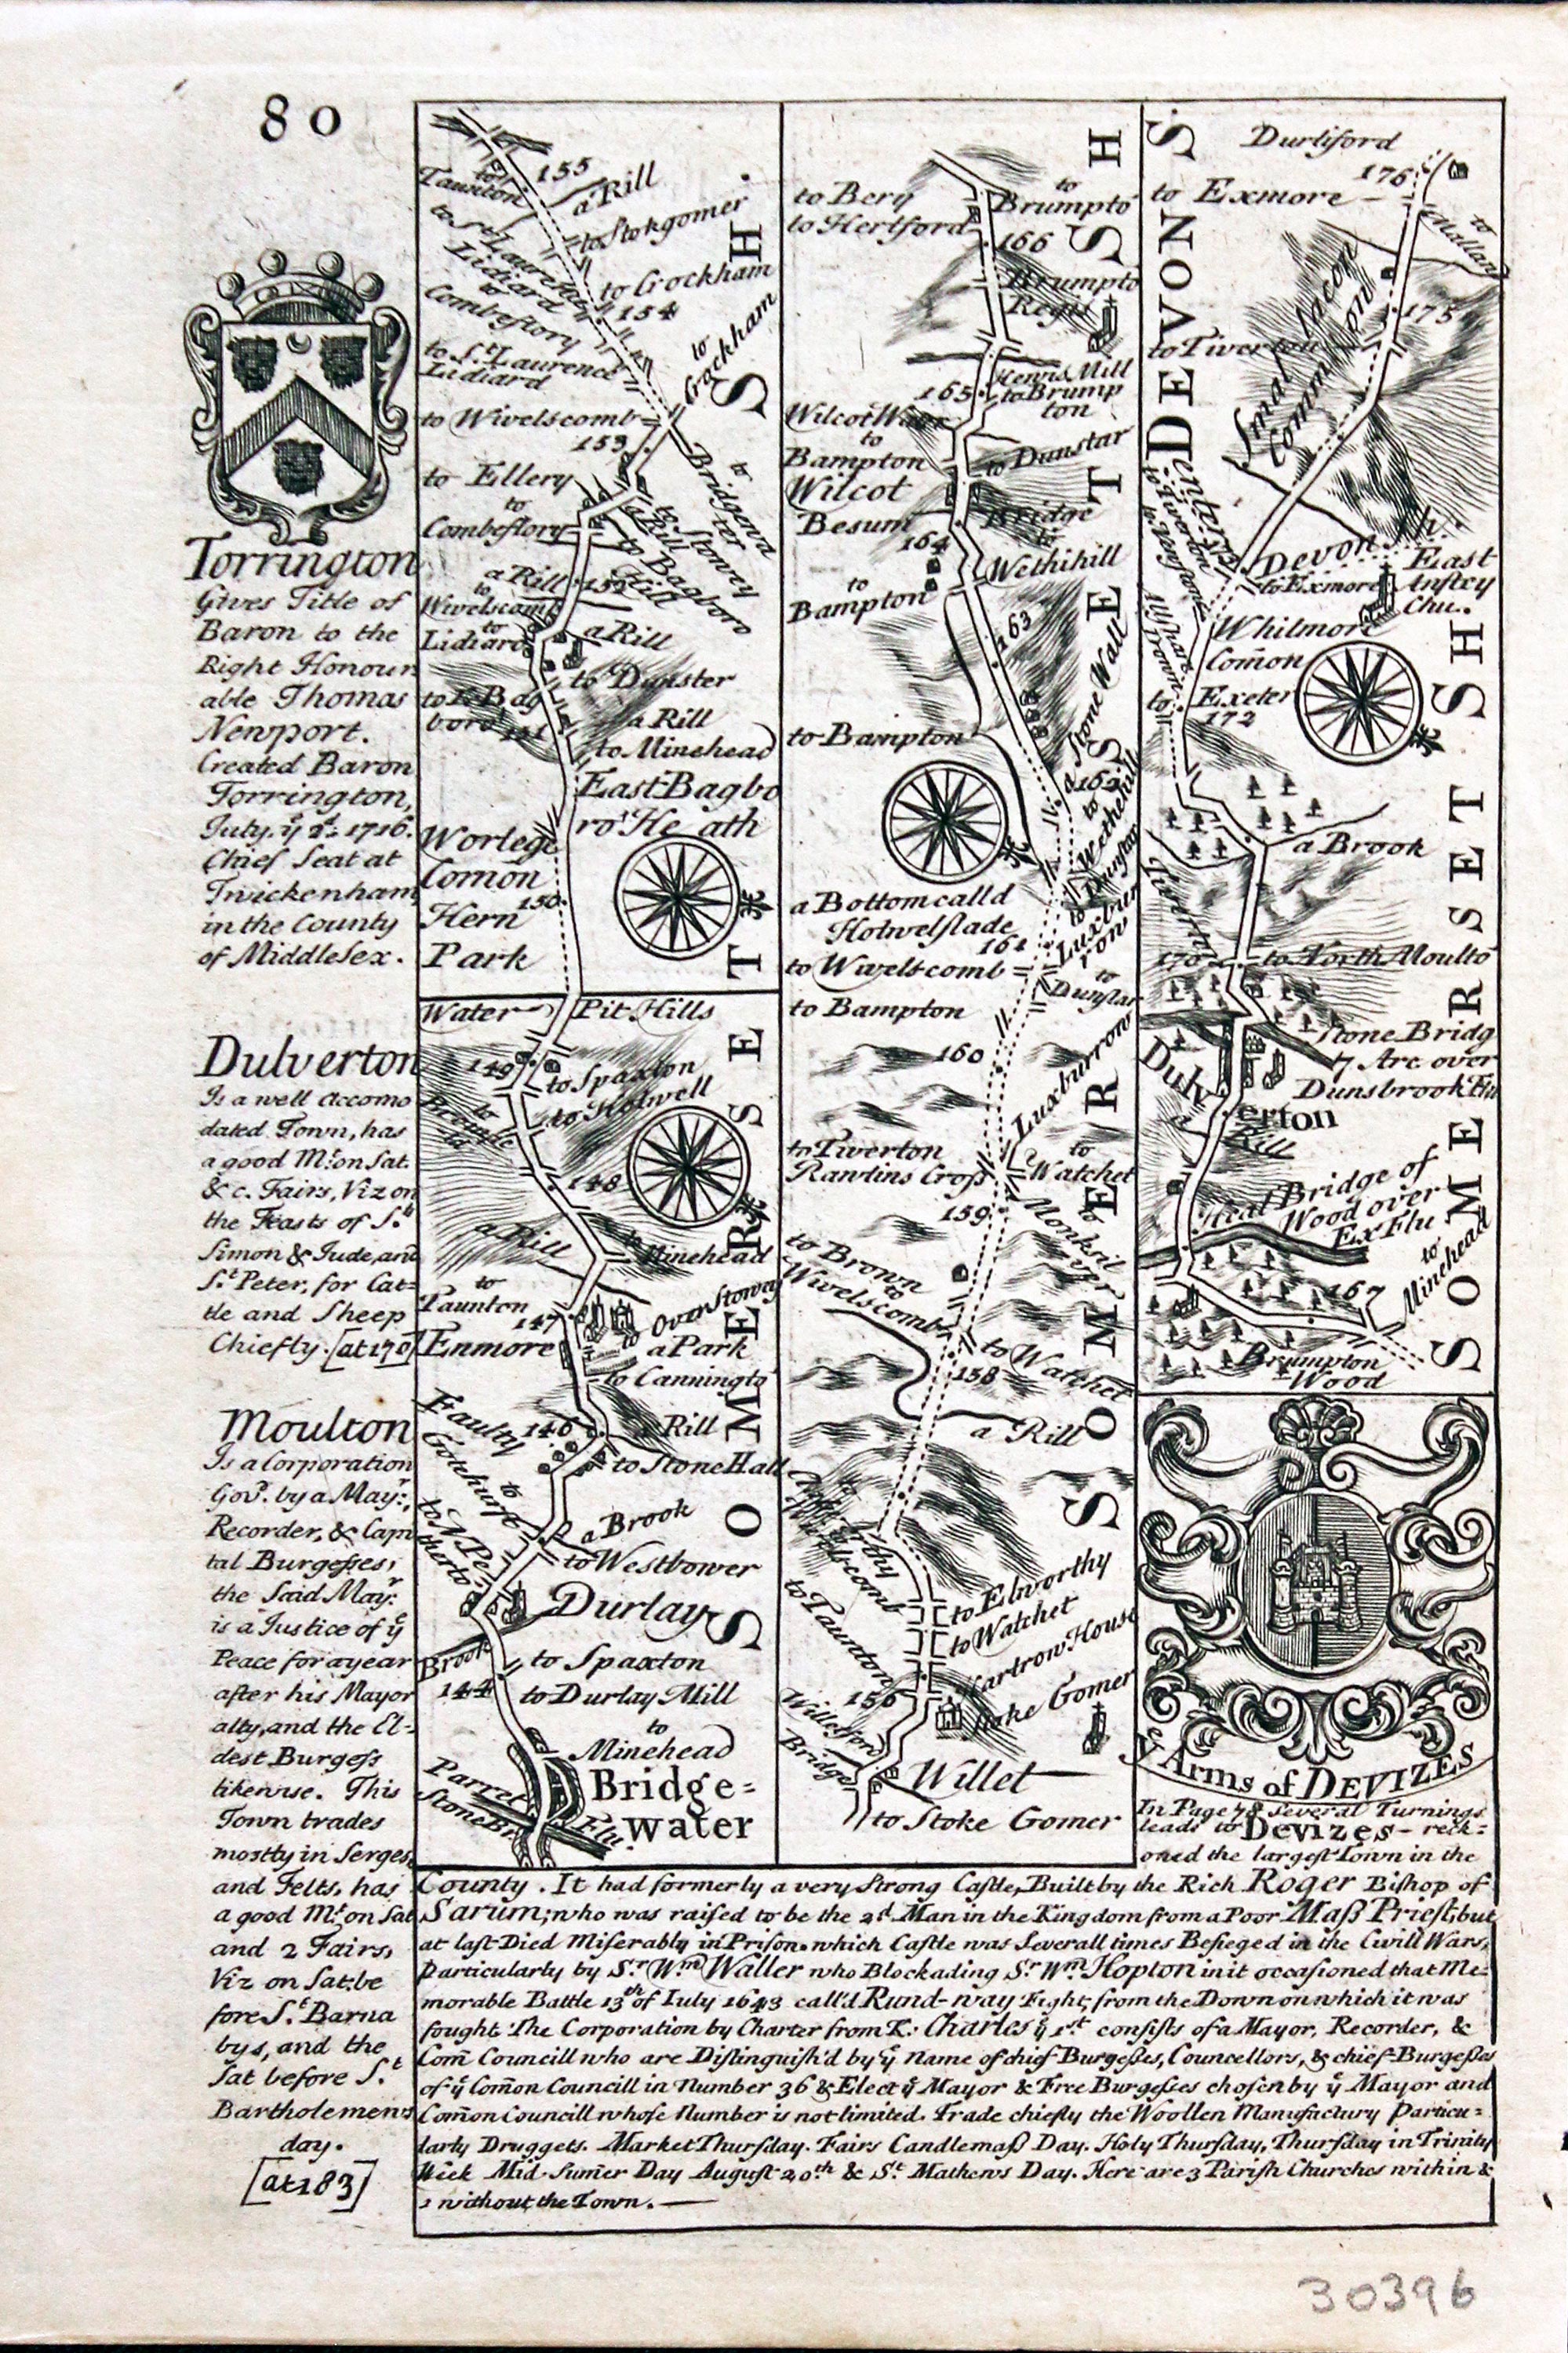 80
Torrington
Gives Title of
Baron to the
Right Honour
able Thomas
Newport.
Created Baron
Torrington,
July, ẙ 1716.
Chief Seat at
Twickenham
in the County
of Middlesex.
Dulverton
Is a well Accomo
dated Town, has
a good Mt. on Sat.
& c. Fairs, Viz on
the Feasts of St.
Simon & Jude, and
St. Peter, for Cat=
tle and Sheep
Chiefly. [at 170]
Moulton
Is a Corporation
Gov.d by a Mayr.,
Recorder, & Capi
tal Burgesses,
the Said Mayr.
is a Justice of ẙ
Peace for a year
after his Mayor
alty, and the El-
dest Burgess
likewise. This
Town trades
mostly in Serges,
and Felts, has
a good Mt. on Sat
and 2 Fairs,
Viz on Sat. be
fore St. Barna
bys, and the
Sat before St.
Bartholemews
day.
[at 183]
155
to Taunton
a Rill
to Stokgomer
to St. Laurence Lidiard
to Crockham
154
to Combeflory
to Crockham
to St. Laurence
Lidiard
to Wivelscomb
153
to Bridgewa
ter
to Ellery
to Stowey
a Rill
to
Combeflory
to Bagboro
Hill
a Rill
152
to
Wivelscomb
to
Lidiard
a Rill
to Dunster
to B. Bag
boro
151
a Rill
to Minehead
East Bagbo
ro' Heath
Worlege
Comõn
150
Hern
Park
Water
Pit Hills
149
to Spaxton
to Holwell
148
a Rill
to Minehead
to
Taunton
147
to Over Stowey
Enmore
a Park
to Canningtõ
Faulty
146
a Rill
to Gotehurst
to Stone Hall
a Brook
to Westbower
to N. Pe
therto
Durlay
Brook
to Spaxton
144
to Durlay Mill
to
Minehead
Parret
Flu.
Stone Br.
Bridge=
water
SOMERSETSH.
to Bery
to Hertford
to
Brumptõ
166
Brumpto
Regis
Henns Mill
165
to Brump
ton
Wilcot Water
to
Bampton
to Dunstar
Wilcot
Besum
Bridge
164
to
Wethihill
to
Bampton
163
a Stone Wall
to Bampton
162
to Wethehill
to Dunstar
a Bottom calld
Holwelslade
161
to Luxbur
row
to Wivelscomb
to
Dunstar
to Bampton
160
Luxburrow
to Tiverton
Rawlins Cross
to
Watchet
159
to Monksil
ver
to Brown
to
Wivelscomb
to Watchet
158
a Rill
to Elworthy
to Watchet
to Taunton
Hartrow House
156
Stoke Gomer
Willesford
Bridge
Willet
to Stoke Gomer
SOMERSETSH
Durlsford
176
to Exmore
to
Malland
Smal lacon
Common
175
to Tiverton
DEVONS.
enters
Devonsh.
to Tiverton
to Exmore
East
Anstey
Chu.
Whilmore
Comõn
to
Exeter
172
a Brook
170
to North Moultõ
Stone Bridg
7 Arc over
Dunsbrook Flu
Dulv
erton
Rill
Heal Bridge of
Wood over
Ex Flu
to
Minehead
167
Brumpton
Wood
SOMERSETSH
ẙe Arms of DEVIZES
In Page 78 several Turnings
leads to Devizes - reck=
oned the largest Town in the
County. It had formerly a very Strong Castle, Built by the Rich Roger Bishop of
Sarum; who was raised to be the 2d. Man in the Kingdom from a Poor Mass Priest; but
at last Died Miserably in Prison. which Castle was Severall times Besieged in the Civill Wars,
particularly by Sr. Wm. Waller who Blockading Sr. Wm. Hopton in it occasioned that Me=
morable Battle 13th of July 1643 call'd Rund-way Fight, from the Down on which it was
fought. The Corporation by Charter from K: Charles ẙ 1st. consists of a Mayor, Recorder, &
Com̃ Councill who are Distinguish'd by ẙ name of chief Burgesses, Councellors, & chief Burgesses
of ẙ Com̃on Councill in Number 36 & Elect ẙ Mayor & Free Burgesses chosen by ẙ Mayor and
Com̃on Councill whose Number is not limited. Trade chiefly the Woollen Manufactury Particu=
larly Druggets. Market Thursday. Fairs Candlemass Day. Holy Thursday, Thursday in Trinity
Week Mid-Sum̃er Day August 20th & St. Mathews Day. Here are 3 Parish Churches within &
1 without the Town.
30396